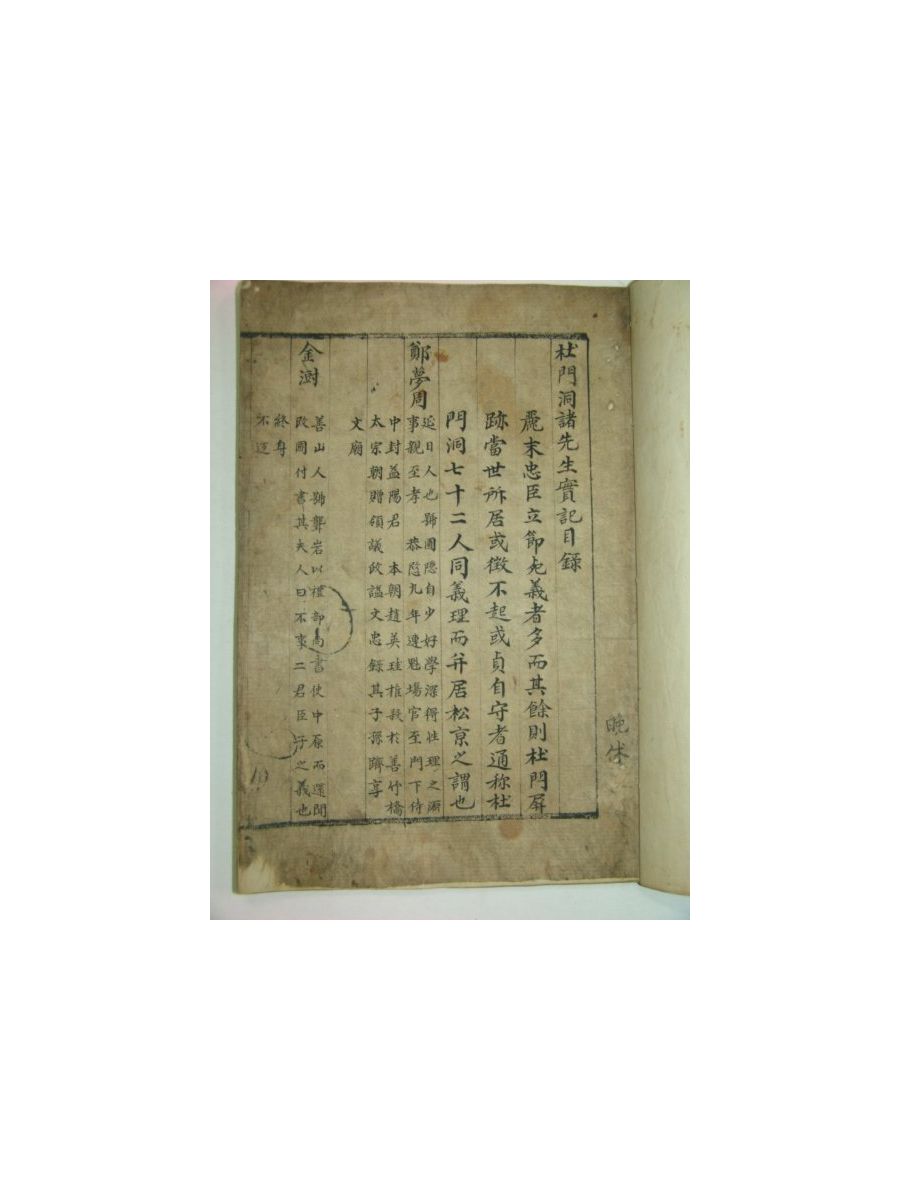 杜門洞諸先生實記目錄
麗末忠臣立節死義者多而其餘則杜門屛
跡當世所居或徵不起或貞自守者通称杜
門洞七十二人同義理而并居松京之謂也
鄭夢周
延日人也號圃隱自少好學深得性理之源
事親至孝 恭愍九年連魁場官至門下侍
中封益陽君 本朝趙英珪椎殺於善竹橋
太宗朝贈領議政謚文忠錄其子孫躋享
文廟
金澍
善山人號聾岩以禮部尙書使中原而還聞
改國付書其夫人曰不事二君臣子之義也
終身
不返
晩